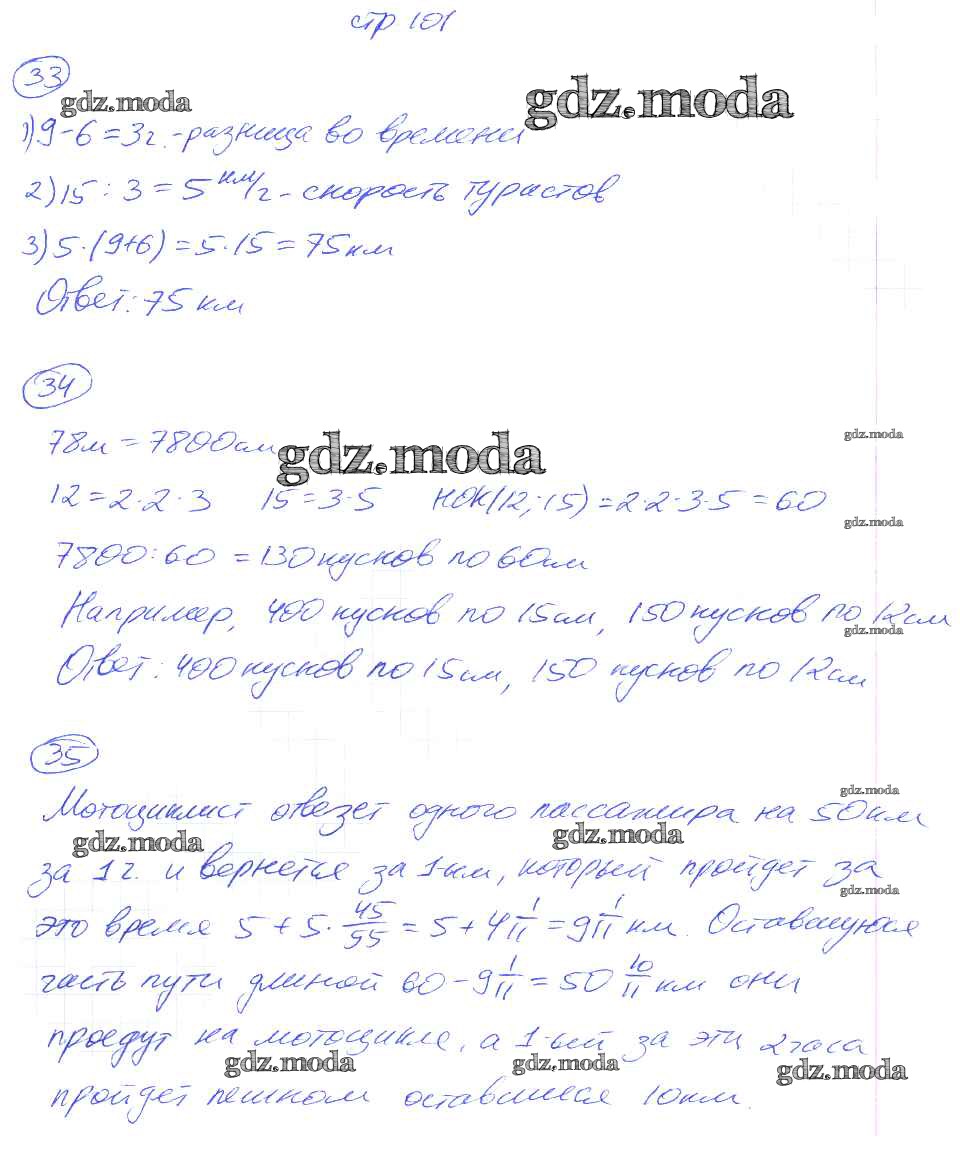 стр 101
33
gdz.moda
gdz.moda
1) 9 - 6 = 3 г. - разница во времени
2) 15 : 3 = 5 км/г - скорость туристов
3) 5 · (9+6) = 5 · 15 = 75 км
Ответ: 75 км
34
78м = 7800см
gdz.moda
gdz.moda
12 = 2 · 2 · 3 15 = 3 · 5 НОК(12; 15) = 2 · 2 · 3 · 5 = 60
gdz.moda
7800 : 60 = 130 кусков по 60см
Например, 400 кусков по 15см, 150 кусков по 12см
gdz.moda
Ответ: 400 кусков по 15см, 150 кусков по 12см
35
gdz.moda
Мотоциклист отвезет одного пассажира на 50км
gdz.moda
gdz.moda
за 1 г. и вернется за 1-км, который пройдет за
gdz.moda
это время 5 + 5 · 45/55 = 5 + 4 1/11 = 9 1/11 км. Оставшуюся
часть пути длиной 60 - 9 1/11 = 50 10/11 км они
проедут на мотоцикле, а 1-ый за эти 2 часа
gdz.moda
gdz.moda
gdz.moda
пройдет пешком оставшиеся 10км.